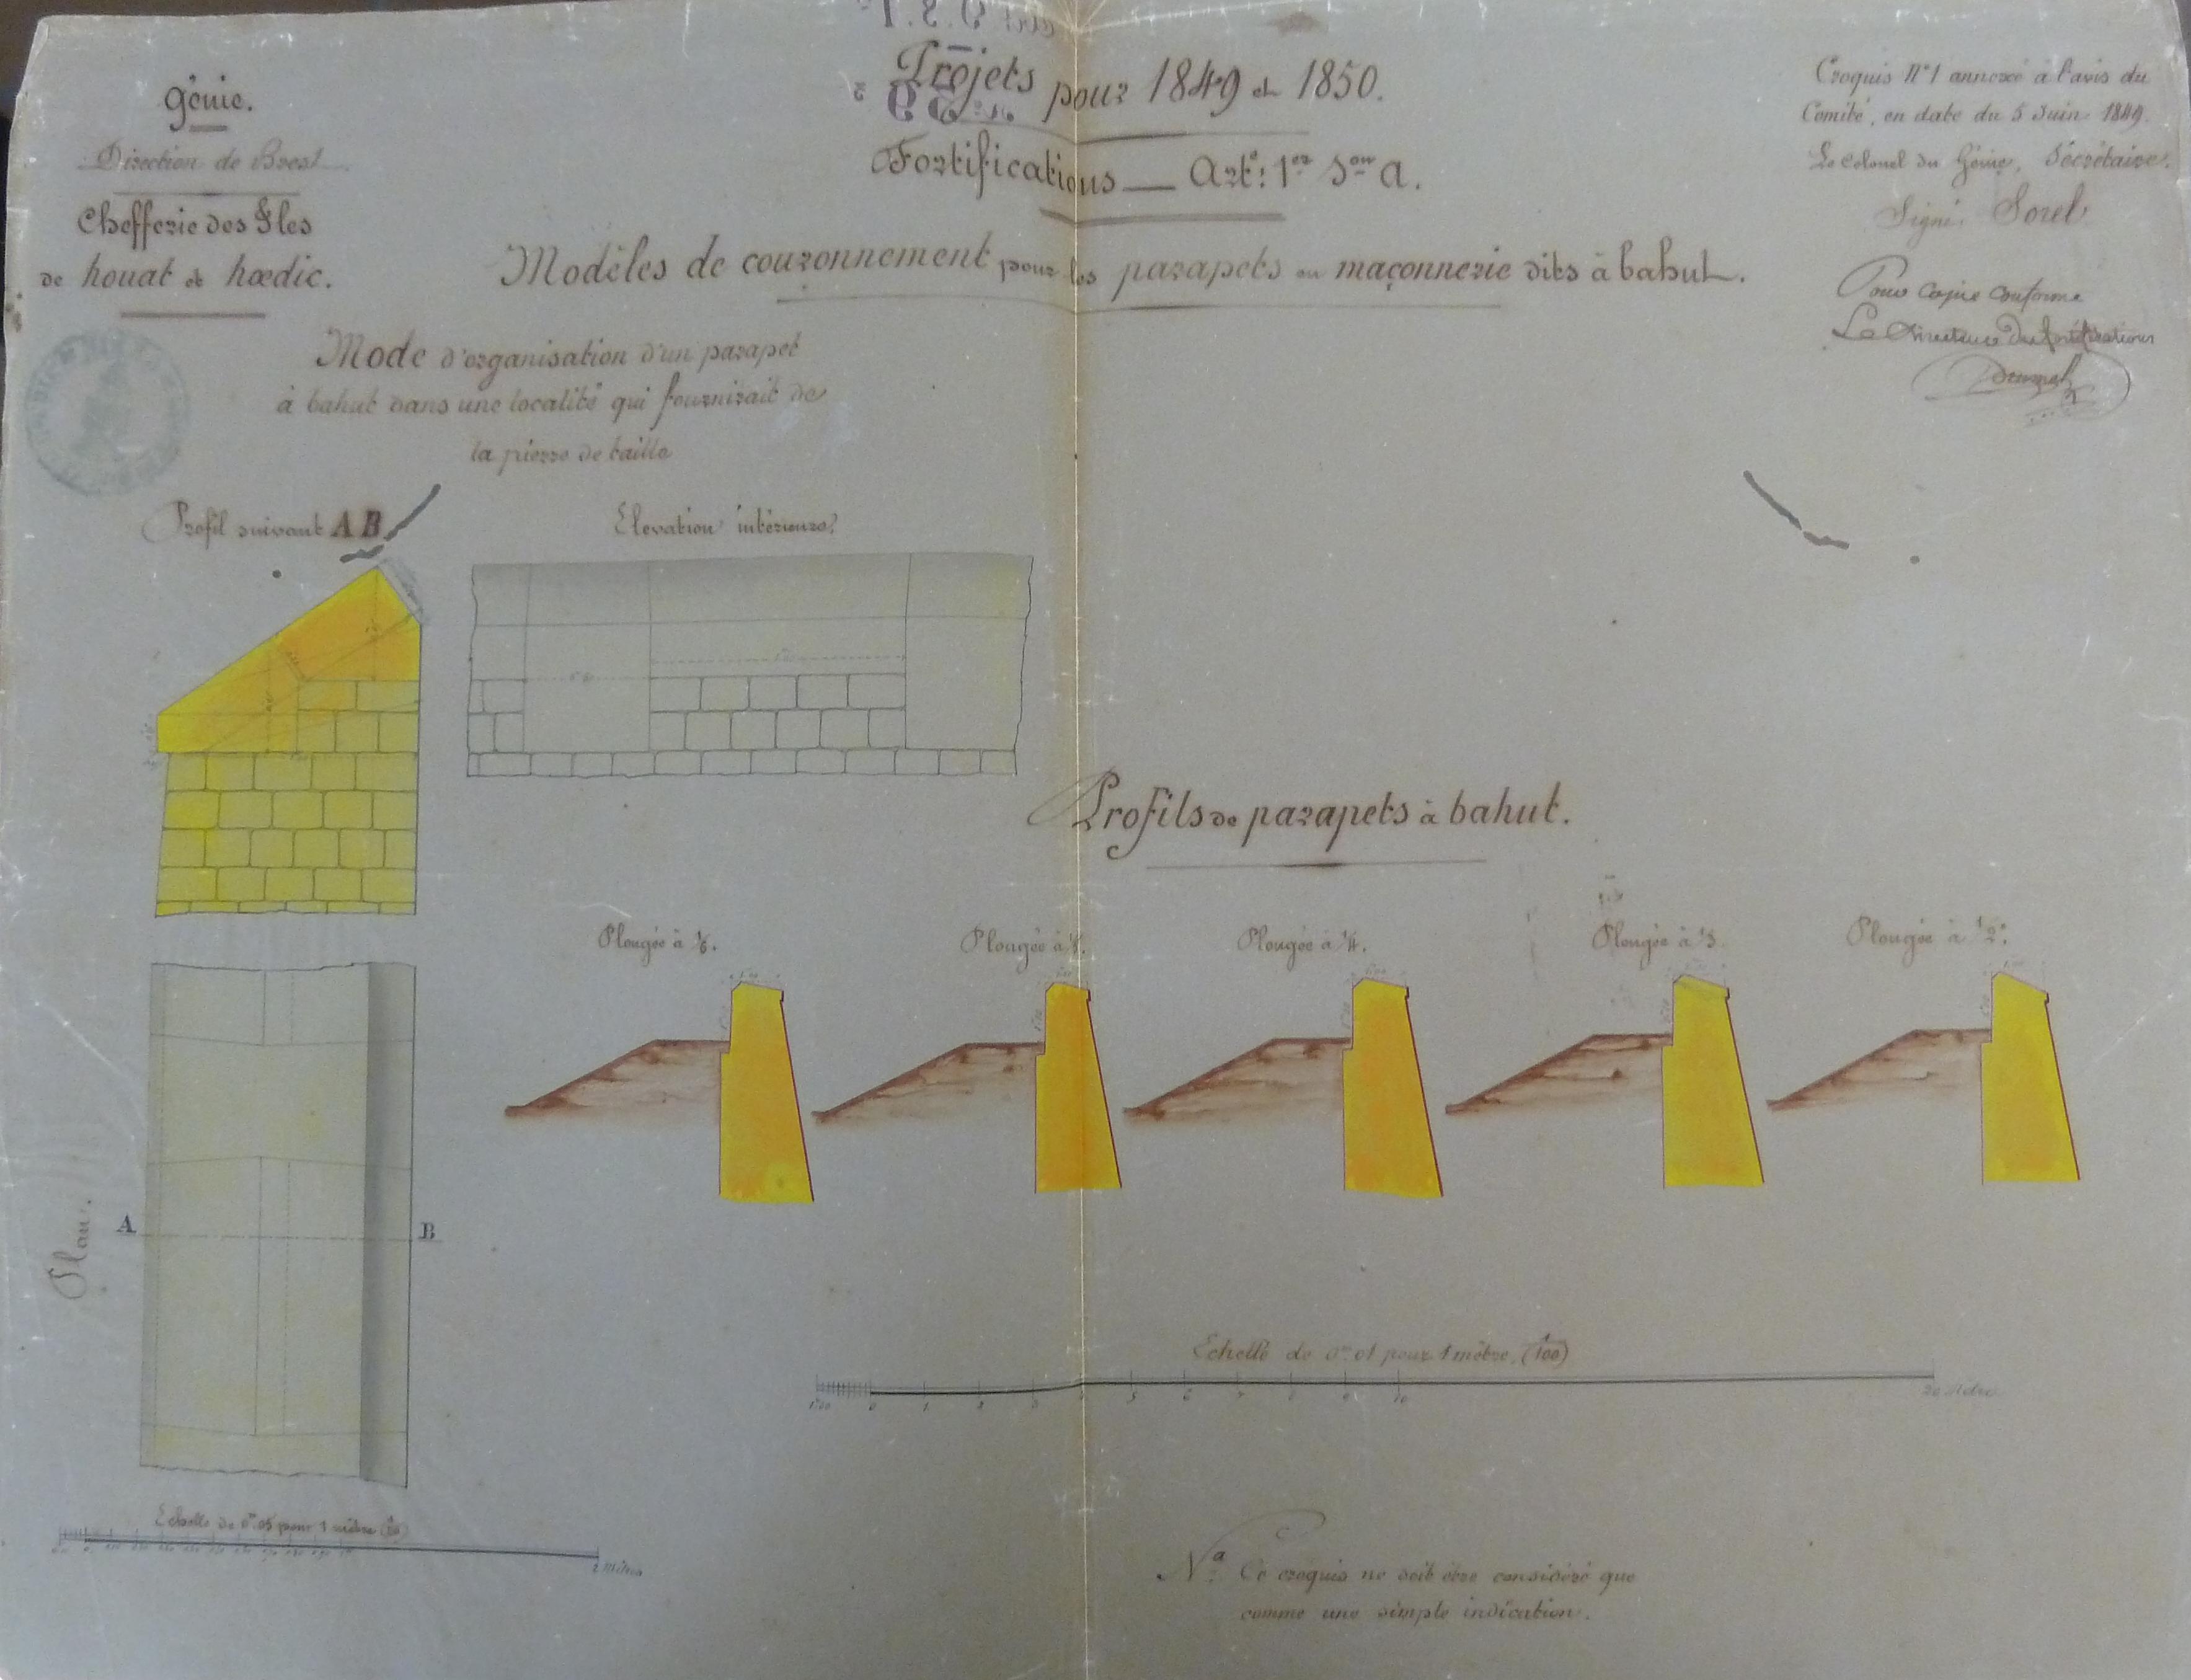 Génie.
Direction de Brest
Chefferie des Îles
de houat et hœdic.
Projets pour 1849 et 1850.
Fortifications — Art.e 1er Son a.
Modèles de couronnement pour les parapets en maçonnerie dits à bahut.
Croquis N°1 annexé à l'avis du
Comité, en date du 5 Juin 1849.
Le Colonel du Génie, Sécrétaire.
Signé Sorel
Pour copie conforme
Le Directeur des fortifications
Mode d'organisation d'un parapet
à bahut dans une localité qui fournirait de
la pierre de taille
Profil suivant AB
Elevation intérieure
Profils de parapets à bahut.
Plongée à 1/6.
Plongée à
Plongée à 1/4.
Plongée à 1/3
Plongée à 1/2.
Plan.
A
B
Echelle de 0m01 pour 1 mètre (1/100)
1m00 0 1 2 3 5 6 7 8 9 10 20 Mètres
Echelle de 0m05 pour 1 mètre (1/20)
2 mètres
Na. Ce croquis ne doit être considéré que
comme une simple indication.